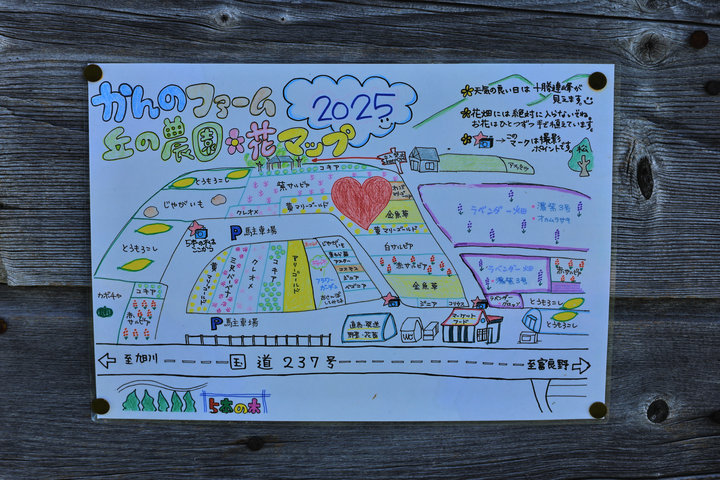 かんのファーム
丘の農園花マップ
2025
天気の良い日は十勝連峰が
見えます
花畑には絶対に入らないでね
お花はひとつずつ手で植えています。
この
マークは撮影
ポイントです。
松
とうもろこし
じゃがいも
とうもろこし
カボチャ
コキア
赤サルビア
クレオメ
紫サルビア
コキア
黄マリーゴールド
金魚草
黄マリーゴールド
白サルビア
赤サルビア
金魚草
ジニア
コリウス
ラベンダー畑
濃紫3号
オカムラサキ
ラベンダー畑
濃紫3号
赤サルビア
ラベンダー
とうもろこし
とうもろこし
P駐車場
黄マリーゴールド
三尺バーベナ
クレオメ
コキア
マリーゴールド
じゃがいも
アスター
コスモス
ジニア
ベゴニア
フラワー
ガーデン
P駐車場
直売・発送
野菜・花苗
WC
マーケット
フード
至旭川
国道237号
至富良野
5本の木